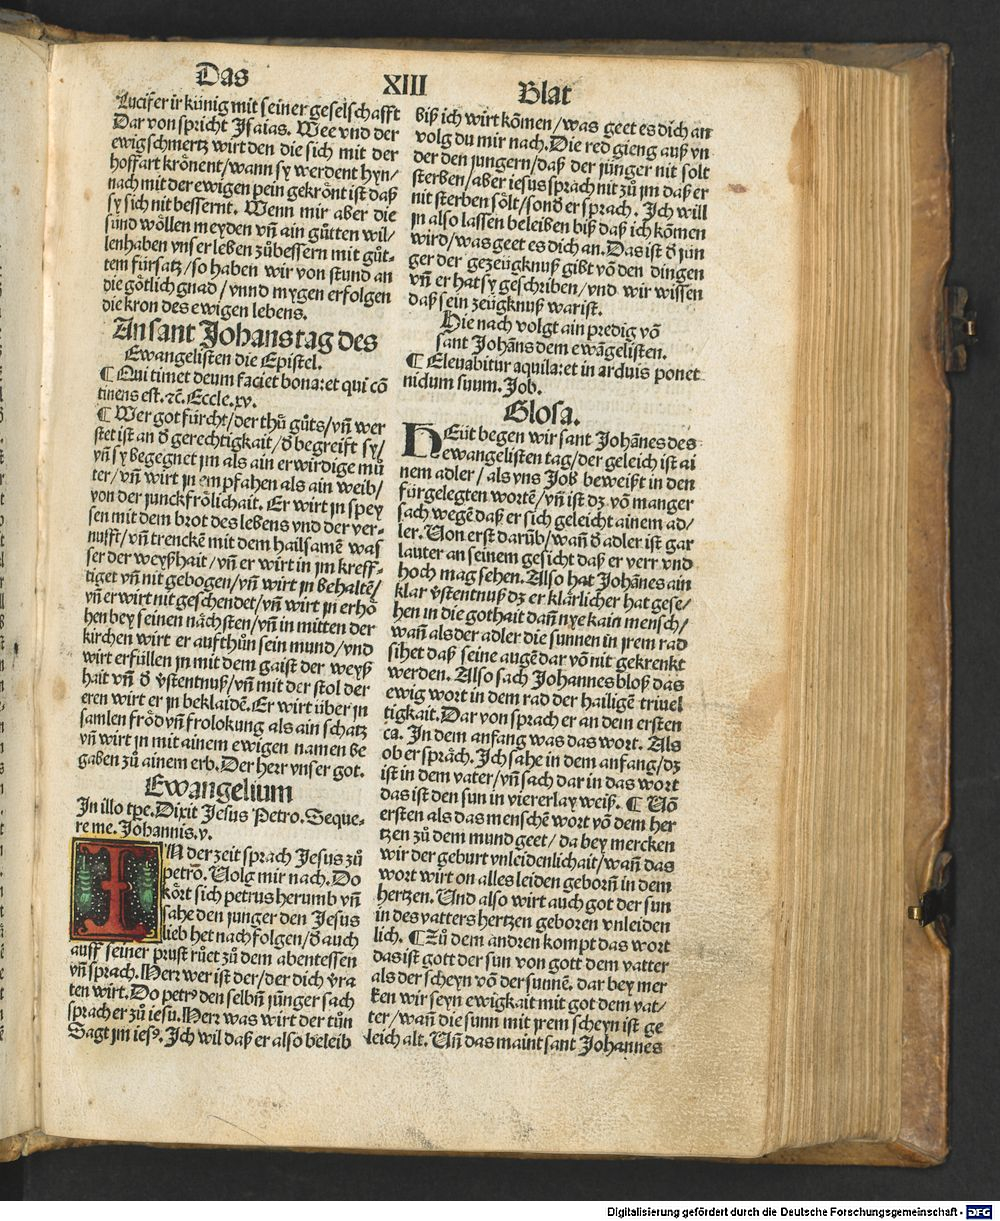 Das XIII Blat
Lucifer ir künig mit seiner geselschafft
Dar von spricht Isaias. Wee vnd der
ewig schmertz wirt den die sich mit der
hoffart krônent/wann sy werdent hyn/
nach mit der ewigen pein gekrônt ist daß
sy sich nit bessernt. Wenn mir aber die
sünd wôllen meyden vñ ain gůtten wil/
len haben vnser leben zůbessern mit gůt-
tem fürsatz/so haben wir von stund an
die gôtlich gnad/vnnd mygen erfolgen
die kron des ewigen lebens.
An sant Johans tag des
Ewangelisten die Epistel.
¶ Qui timet deum faciet bona: et qui cō
tinens est. ⁊c̄. Eccle. xv.
¶ Wer got fürcht/der thů gůts/vñ wer
stet ist an d̄ gerechtigkait/d̄ begreift sy/
vñ sy begegnet jm als ain erwirdige mů
ter/vñ wirt jn empfahen als ain weib/
von der junckfrôlichait. Er wirt jn spey
sen mit dem brot des lebens vnd der ver-
nufft/vñ trenckē mit dem hailsamē was
ser der weyßhait/vñ er wirt in jm kreff-
tiget vñ nit gebogen/vñ wirt jn behaltē/
vñ er wirt nit geschendet/vñ wirt jn erhô
hen bey seinen nâchsten/vñ in mitten der
kirchen wirt er aufthůn sein mund/vnd
wirt erfüllen jn mit dem gaist der weyß
hait vñ d̄ v̄stentnuß/vñ mit der stol der
eren wirt er jn beklaidē. Er wirt über jn
samlen frôd vñ frolokung als ain schatz
vñ wirt jn mit ainem ewigen namen be
gaben zů ainem erb. Der herr vnser got.
Ewangelium
In illo tp̄e. Dixit Jesus Petro. Seque-
re me. Johannis. v.
IN der zeit sprach Jesus zů
petrō. Volg mir nach. Do
kôrt sich petrus herumb vñ
sahe den junger den Jesus
lieb het nachfolgen/d̄ auch
auff seiner prust růet zů dem abentessen
vñ sprach. Herr wer ist der/der dich v̄ra
ten wirt. Do petrꝰ den selbñ jünger sach
sprach er zů iesu. Herr was wirt der tůn
Sagt jm iesꝰ. Ich wil daß er also beleib
biß ich wirt kōmen/was geet es dich an
volg du mir nach. Die red gieng auß vn
der den jungern/daß der jünger nit solt
sterben/aber iesus sprach nit zů jm daß er
nit sterben sôlt/sond̄ er sprach. Ich will
jn also lassen beleiben biß daß ich kōmen
wird/was geet es dich an. Das ist d̄ jün
ger der gezeügknuß gibt vō den dingen
vñ er hat sy geschriben/vnd wir wissen
daß sein zeügknuß war ist.
Hie nach volgt ain predig vō
sant Johāns dem ewāgelisten.
¶ Eleuabitur aquila: et in arduis ponet
nidum suum. Job.
Glosa.
HEüt begen wir sant Johānes des
ewangelisten tag/der geleich ist ai
nem adler/als vns Job beweißt in den
fürgelegten wortē/vñ ist dz vō manger
sach wegē daß er sich geleicht ainem ad/
ler. Von erst darūb/wañ d̄ adler ist gar
lauter an seinem gesicht daß er verr vnd
hoch mag sehen. Also hat Johānes ain
klar v̄stentnuß dz er klârlicher hat gese/
hen in die gothait dañ nye kain mensch/
wañ als der adler die sunnen in jrem rad
sihet daß seine augē dar vō nit gekrenkt
werden. Also sach Johannes bloß das
ewig wort in dem rad der hailigē triuel
tigkait. Dar von sprach er an dem ersten
ca. In dem anfang was das wort. Als
ob er sprâch. Ich sahe in dem anfang/dz
ist in dem vater/vñ sach dar in das wort
das ist den sun in viererlay weiß. ¶ Vō
ersten als das menschē wort vō dem her
tzen zů dem mund geet/da bey mercken
wir der geburt vnleidenlichait/wañ das
wort wirt on alles leiden geborñ in dem
hertzen. Vnd also wirt auch got der sun
in des vatters hertzen geboren vnleiden
lich. ¶ Zů dem andren kompt das wort
das ist gott der sun von gott dem vatter
als der scheyn vō der sunnē. dar bey mer
ken wir seyn ewigkait mit got dem vat/
ter/wañ die sunn mit jrem scheyn ist ge
leich alt. Vñ das maint sant Johannes
Digitalisierung gefördert durch die Deutsche Forschungsgemeinschaft - DFG